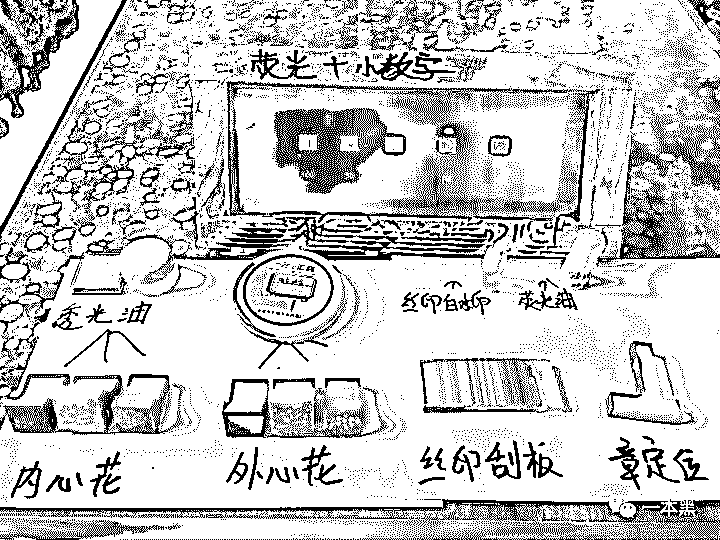 荧光十小数字
透光油
丝印白水印
荧光油
内心花
外心花
丝印刮板
章定位
一本黑